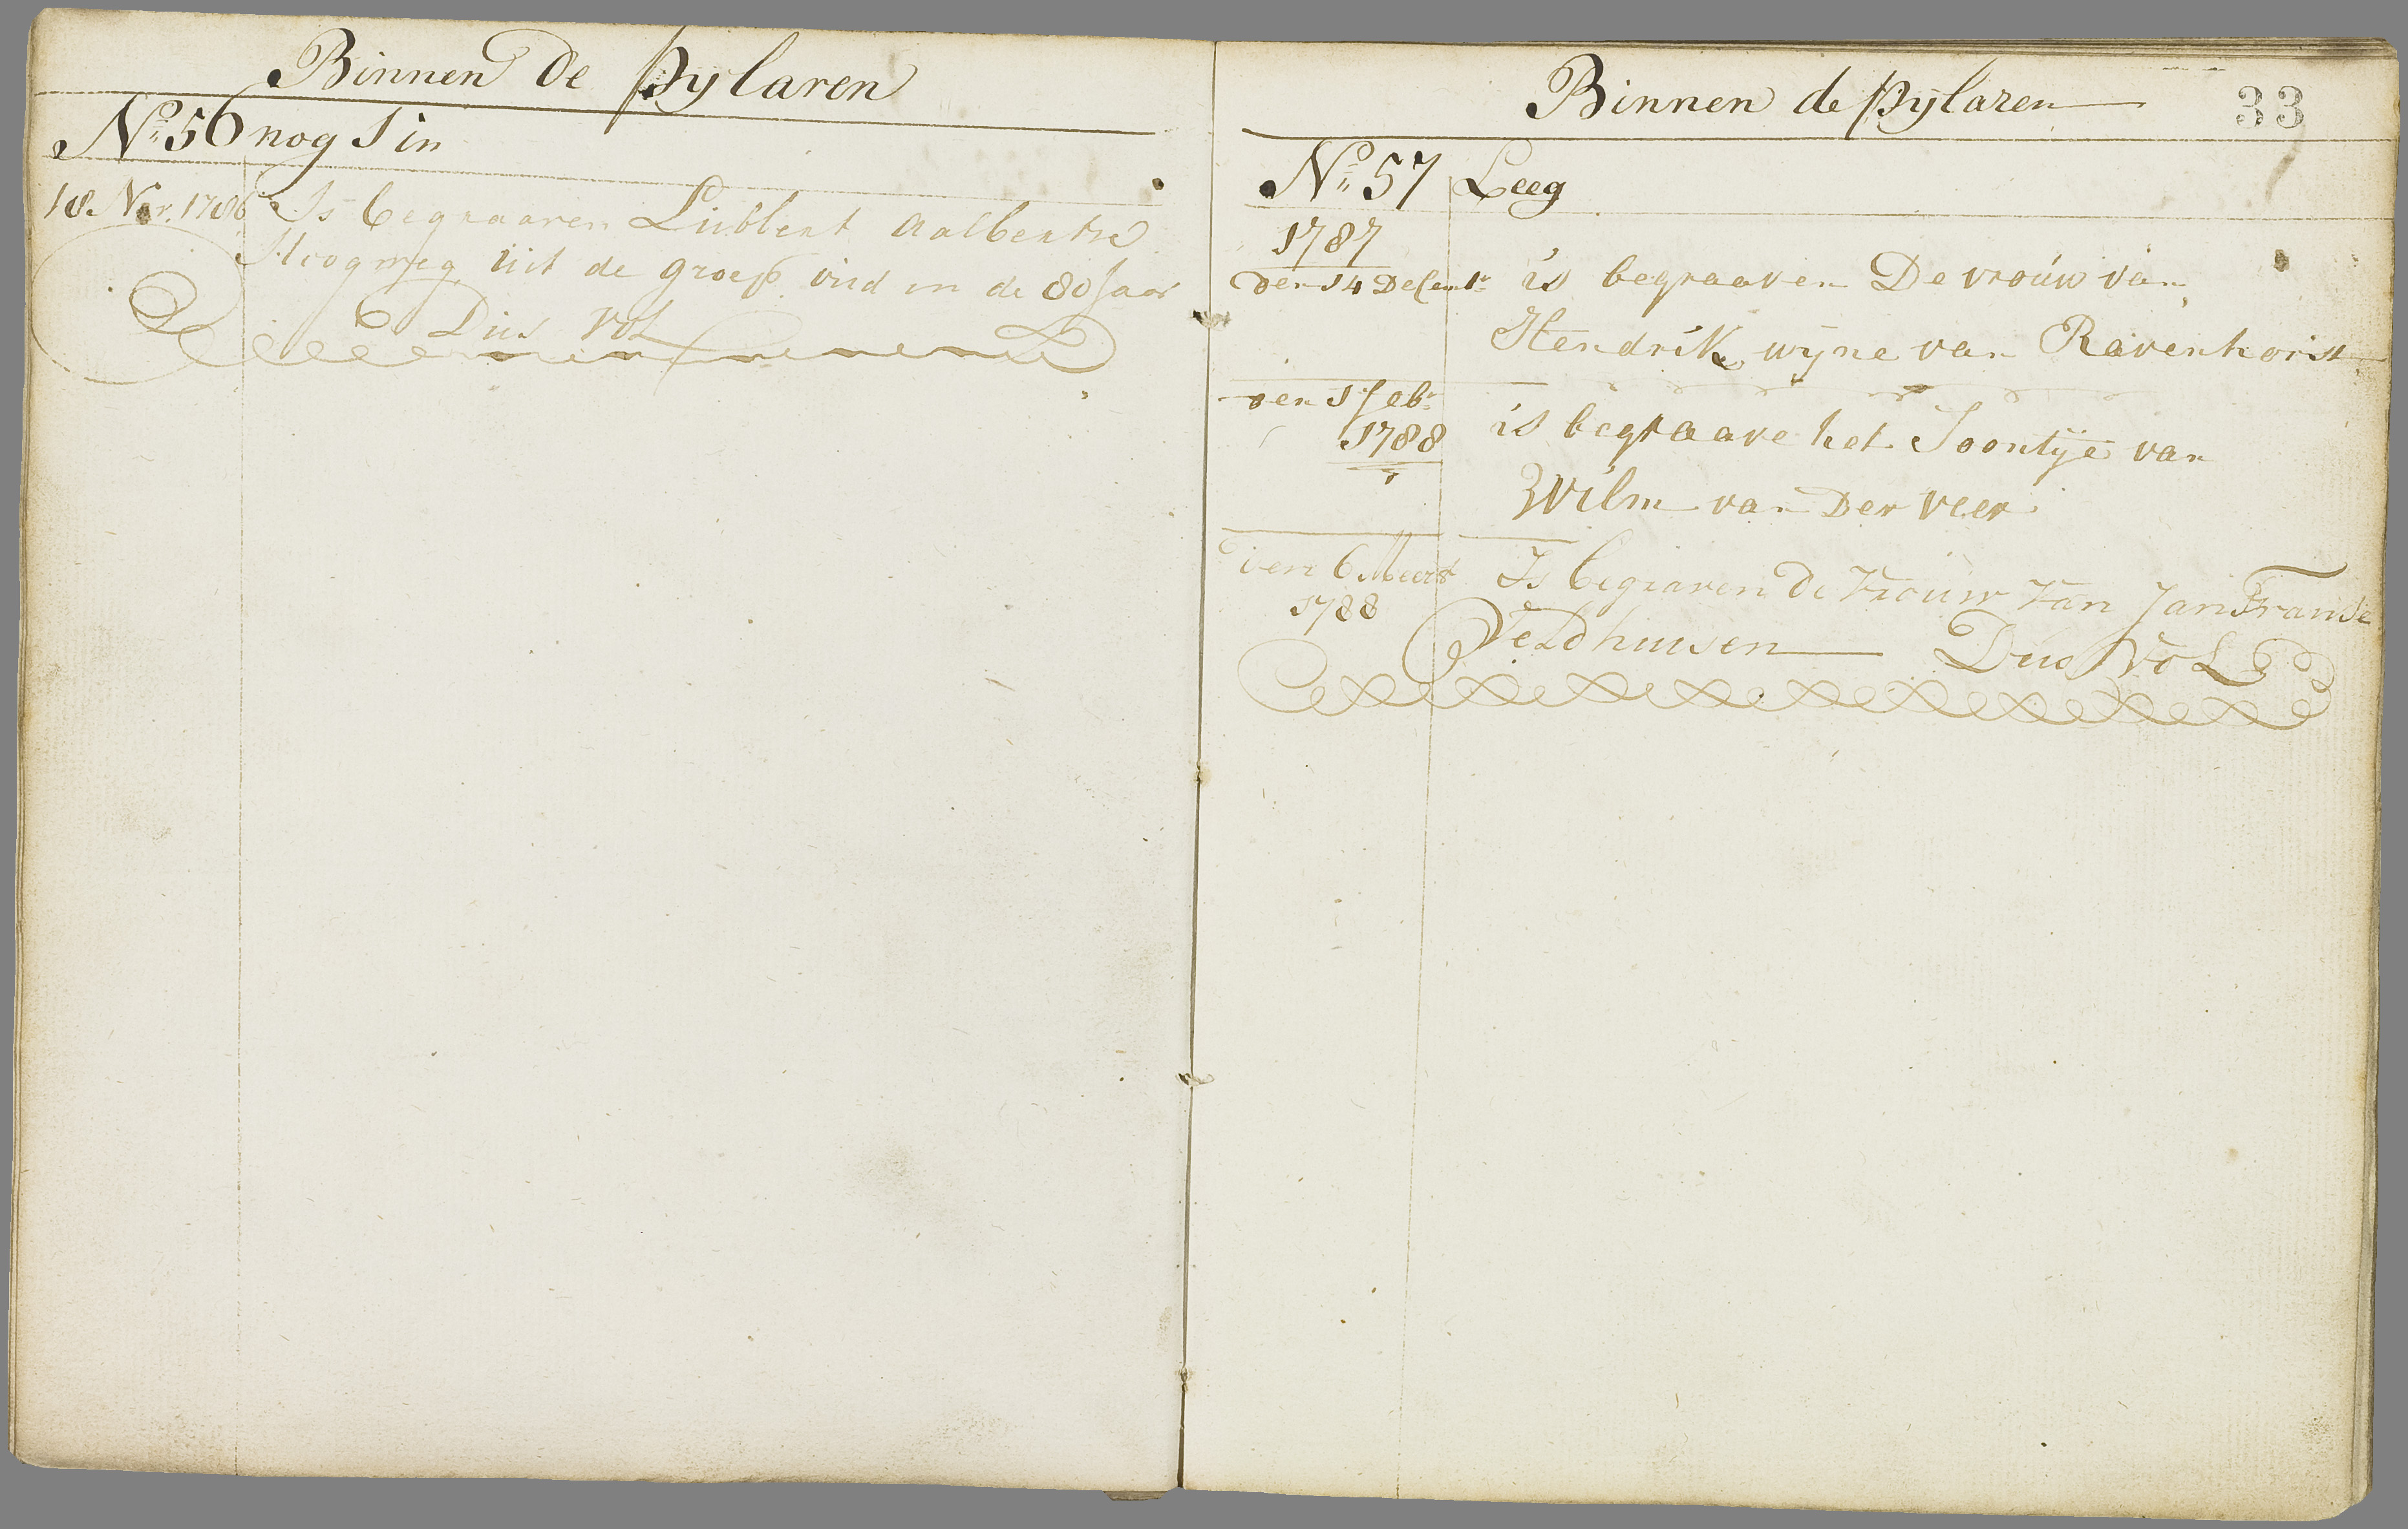 Binnen De pylaren
No 56 nog 1 in
18 Nov. 1786 Is begraaven Lubbert Aalbertse
Hoogweg uit de groep oud in de 80 Jaar
Dus Vol
Binnen de pylaren 33
No 57 Leeg
1787
den 14 Decembr is begraaven De vrouw van
Hendrik wyne van Ravenhorst
den 1 febr
1788 is begraave het Soontye van
Wilm van Der veer
den 6 Meert Is begraven De Vrouw Van Jan Franse
1788 Veldhuusen Dus Vol